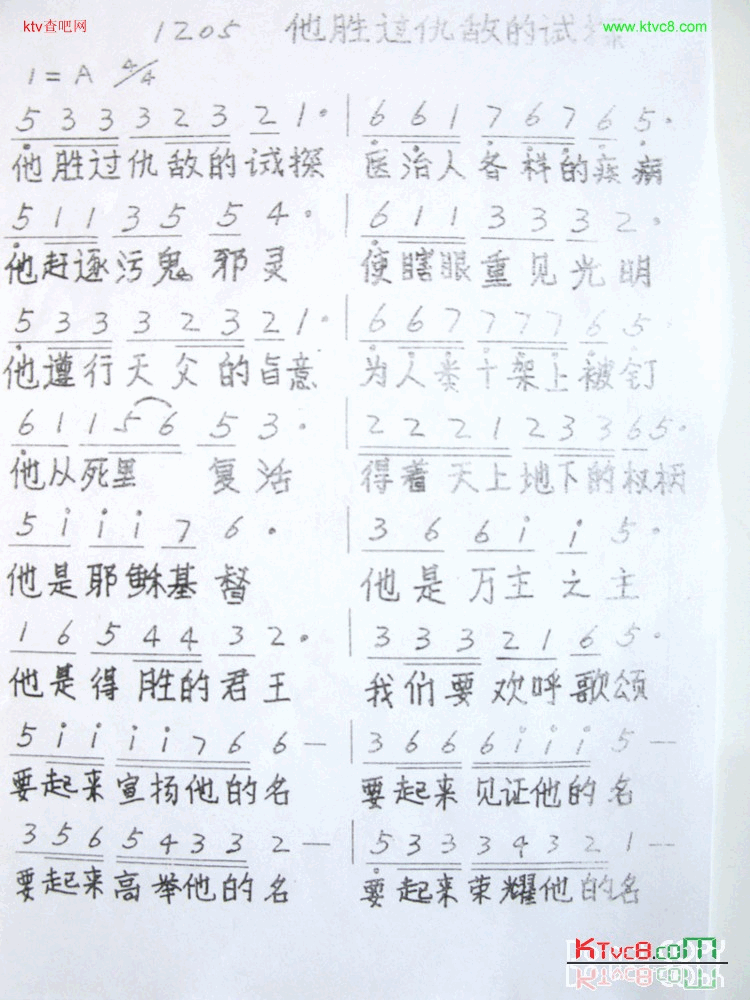 ktv查吧网
www.ktvc8.com
1205 他胜过仇敌的试探
1=A 4/4
5 3 3 3 2 3 2 1 · | 6 6 1 7 6 7 6 5 ·
他胜过仇敌的试探 医治人各样的疾病
5 1 1 3 5 5 4 · | 6 1 1 3 3 3 2 ·
他赶逐污鬼邪灵 使瞎眼重见光明
5 3 3 3 2 3 2 1 · | 6 6 7 7 7 7 6 5 ·
他遵行天父的旨意 为人类十架上被钉
6 1 1 5 6 5 3 · | 2 2 2 1 2 3 3 6 5 ·
他从死里 复活 得着天上地下的权柄
5 i i i 7 6 · | 3 6 6 i i 5 ·
他是耶稣基督 他是万主之主
1 6 5 4 4 3 2 · | 3 3 3 2 1 6 5 ·
他是得胜的君王 我们要欢呼歌颂
5 i i i i 7 6 6 — | 3 6 6 6 i i i 5 —
要起来宣扬他的名 要起来见证他的名
3 5 6 5 4 3 3 2 — | 5 3 3 3 4 3 2 1 —
要起来高举他的名 要起来荣耀他的名
KTvc8.com